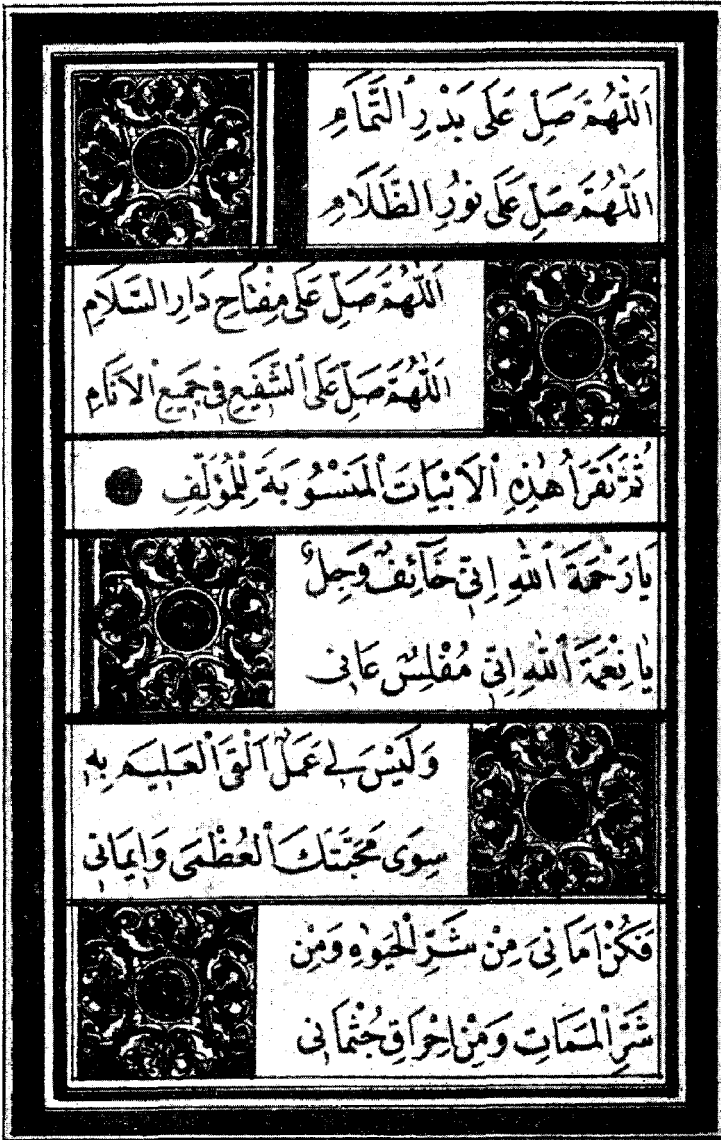 اَللّٰهُمَّ صَلِّ عَلَى بَدْرِ ٱلتَّمَامِ
اَللّٰهُمَّ صَلِّ عَلَى نُورِ الظَّلَامِ
اَللّٰهُمَّ صَلِّ عَلَى مِفْتَاحِ دَارِ السَّلَامِ
اَللّٰهُمَّ صَلِّ عَلَى ٱلشَّفِيعِ فِي جَمِيعِ ٱلْاَنَامِ
ثُمَّ تَقْرَأُ هٰذِهِ ٱلْاَبْيَاتَ ٱلْمَنْسُوبَةَ لِلْمُؤَلِّفِ
يَا رَحْمَةَ ٱللّٰهِ اِنِّي خَآئِفٌ وَجِلٌ
يَا نِعْمَةَ ٱللّٰهِ اِنِّي مُفْلِسٌ عَانِى
وَلَيْسَ لِي عَمَلٌ اَلْقَى ٱلْعَلِيمَ بِهِ
سِوَى مَحَبَّتِكَ ٱلْعُظْمَى وَاِيمَانِى
فَكُنْ اَمَانِىَ مِنْ شَرِّ ٱلْحَيٰوةِ وَمِنْ
شَرِّ ٱلْمَمَاتِ وَمِنْ اِحْرَاقِ جُثْمَانِى